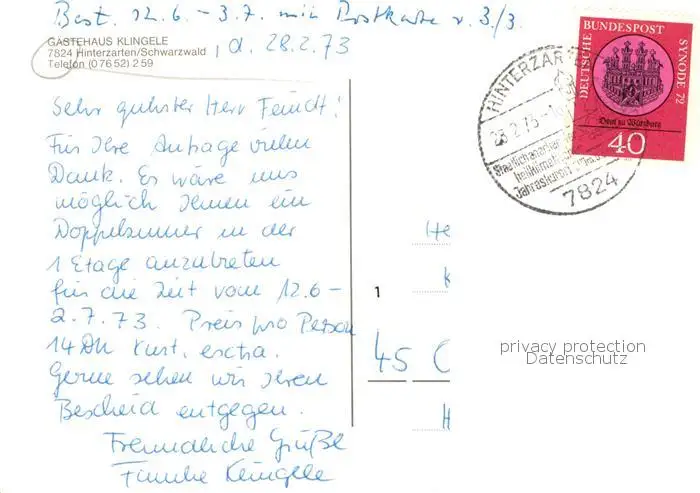 Best. 12.6. - 3.7. mit Postkarte v. 3/3.
GÄSTEHAUS KLINGELE
7824 Hinterzarten/Schwarzwald
Telefon (0 76 52) 2 59
d. 28.2.73
Sehr geehrter Herr Feucht!
Für Ihre Anfrage vielen
Dank. Es wäre uns
möglich Ihnen ein
Doppelzimmer in der
1 Etage anzubieten
für die Zeit vom 12.6 -
2.7.73. Preis pro Person
14 DM Kurt. extra.
Gerne sehen wir Ihrem
Bescheid entgegen.
Freundliche Grüße
Familie Klingele
DEUTSCHE BUNDESPOST
SYNODE 72
Dom zu Würzburg
40
HINTERZAR
28.2.73
heilklimati
7824
1
He
K
45 O
H
privacy protection
Datenschutz